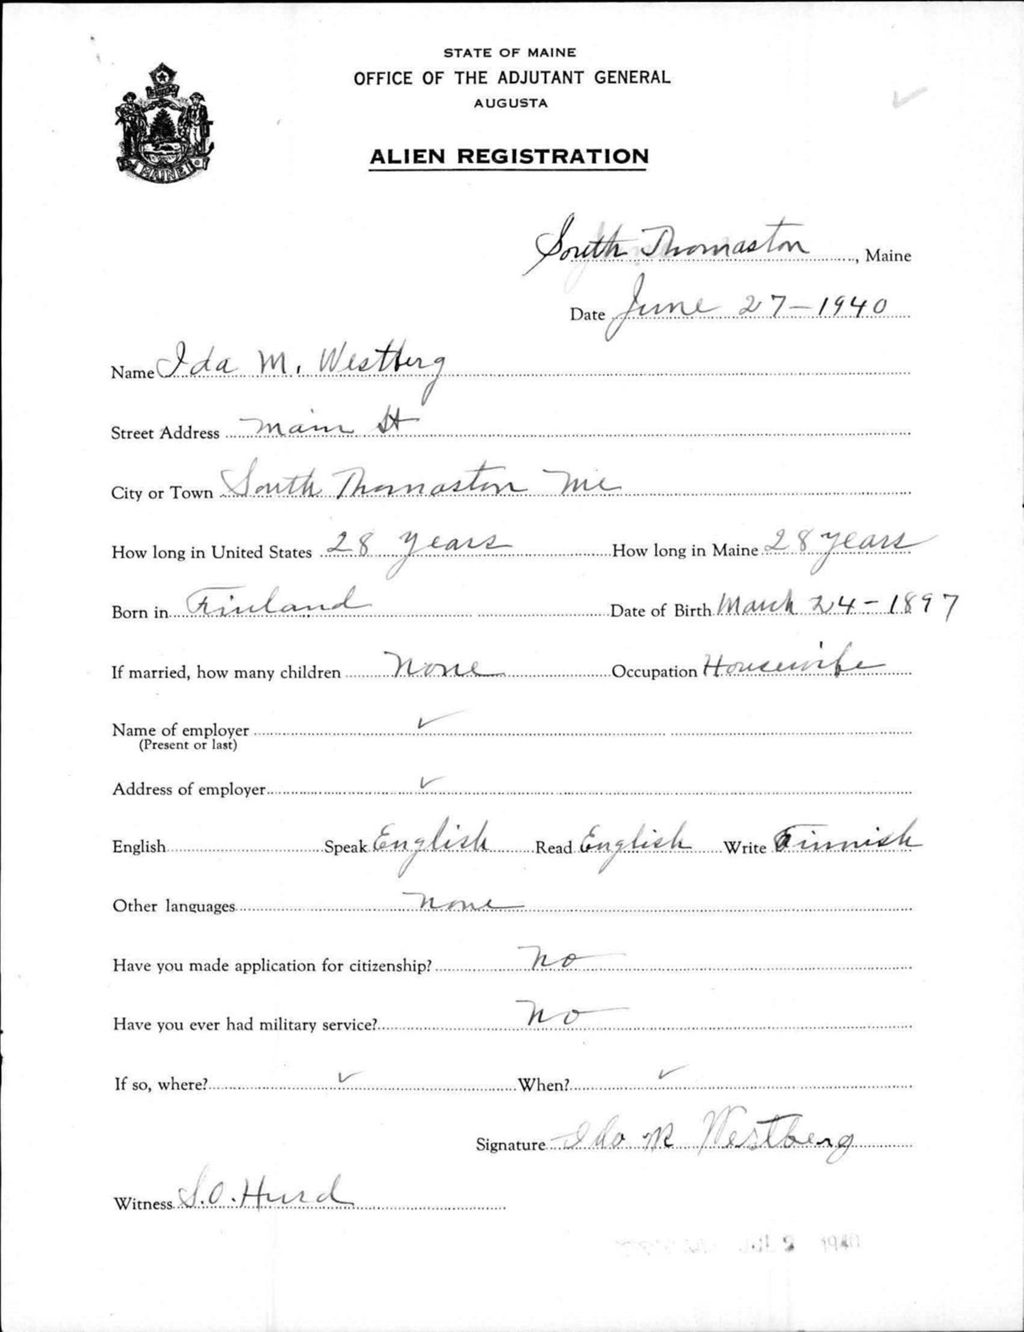 STATE OF MAINE
OFFICE OF THE ADJUTANT GENERAL
AUGUSTA
ALIEN REGISTRATION
MAINE
South Thomaston, Maine
Date June 27-1940
Name Ida M. Westberg
Street Address Main St
City or Town South Thomaston Me
How long in United States 28 years How long in Maine 28 years
Born in Finland Date of Birth March 24-1897
If married, how many children None Occupation Housewife
Name of employer ✓
(Present or last)
Address of employer ✓
English Speak English Read English Write Finnish
Other languages none
Have you made application for citizenship? no
Have you ever had military service? no
If so, where? ✓ When? ✓
Signature Ida M Westberg
Witness S.O. Hurd